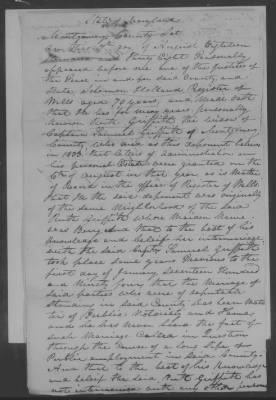 State of Maryland
Montgomery County Sct.
On this 6th day of August Eighteen
hundred and thirty Eight Personally
appeared before me one of the Justices of
the Peace in and for Said County and
State, Solomon Holland Register of
Wills aged 70 years, and made oath
that he has for many years Personally
known Ruth Griffith the widow of
Captain Samuel Griffith of Montgomery
County, who died as this deponent believes
in 1833 that letters of administration on
his personal Estate were granted on the
6th of August in that year as is matter
of Record in the office of Register of Wills
that he the said deponent was originally
of the same Neighborhood of the Said
Ruth Griffith whose Maiden Name
was Berry and that to the best of his
knowledge and belief her intermarriage
with the said Captn Samuel Griffith
took place Some years Previous to the
first day of January Seventeen hundred
and Ninety four that the Marriage of
Said parties who were of reputable
Standing in Said County has been Matter
of Public Notoriety and Fame,
and he has Never heard the fact of
such Marriage Called in question
through the Course of a long life of
Public employment in Said County.
And that to the best of his knowledge
and belief the Said Ruth Griffith has
not intermarried with any other person